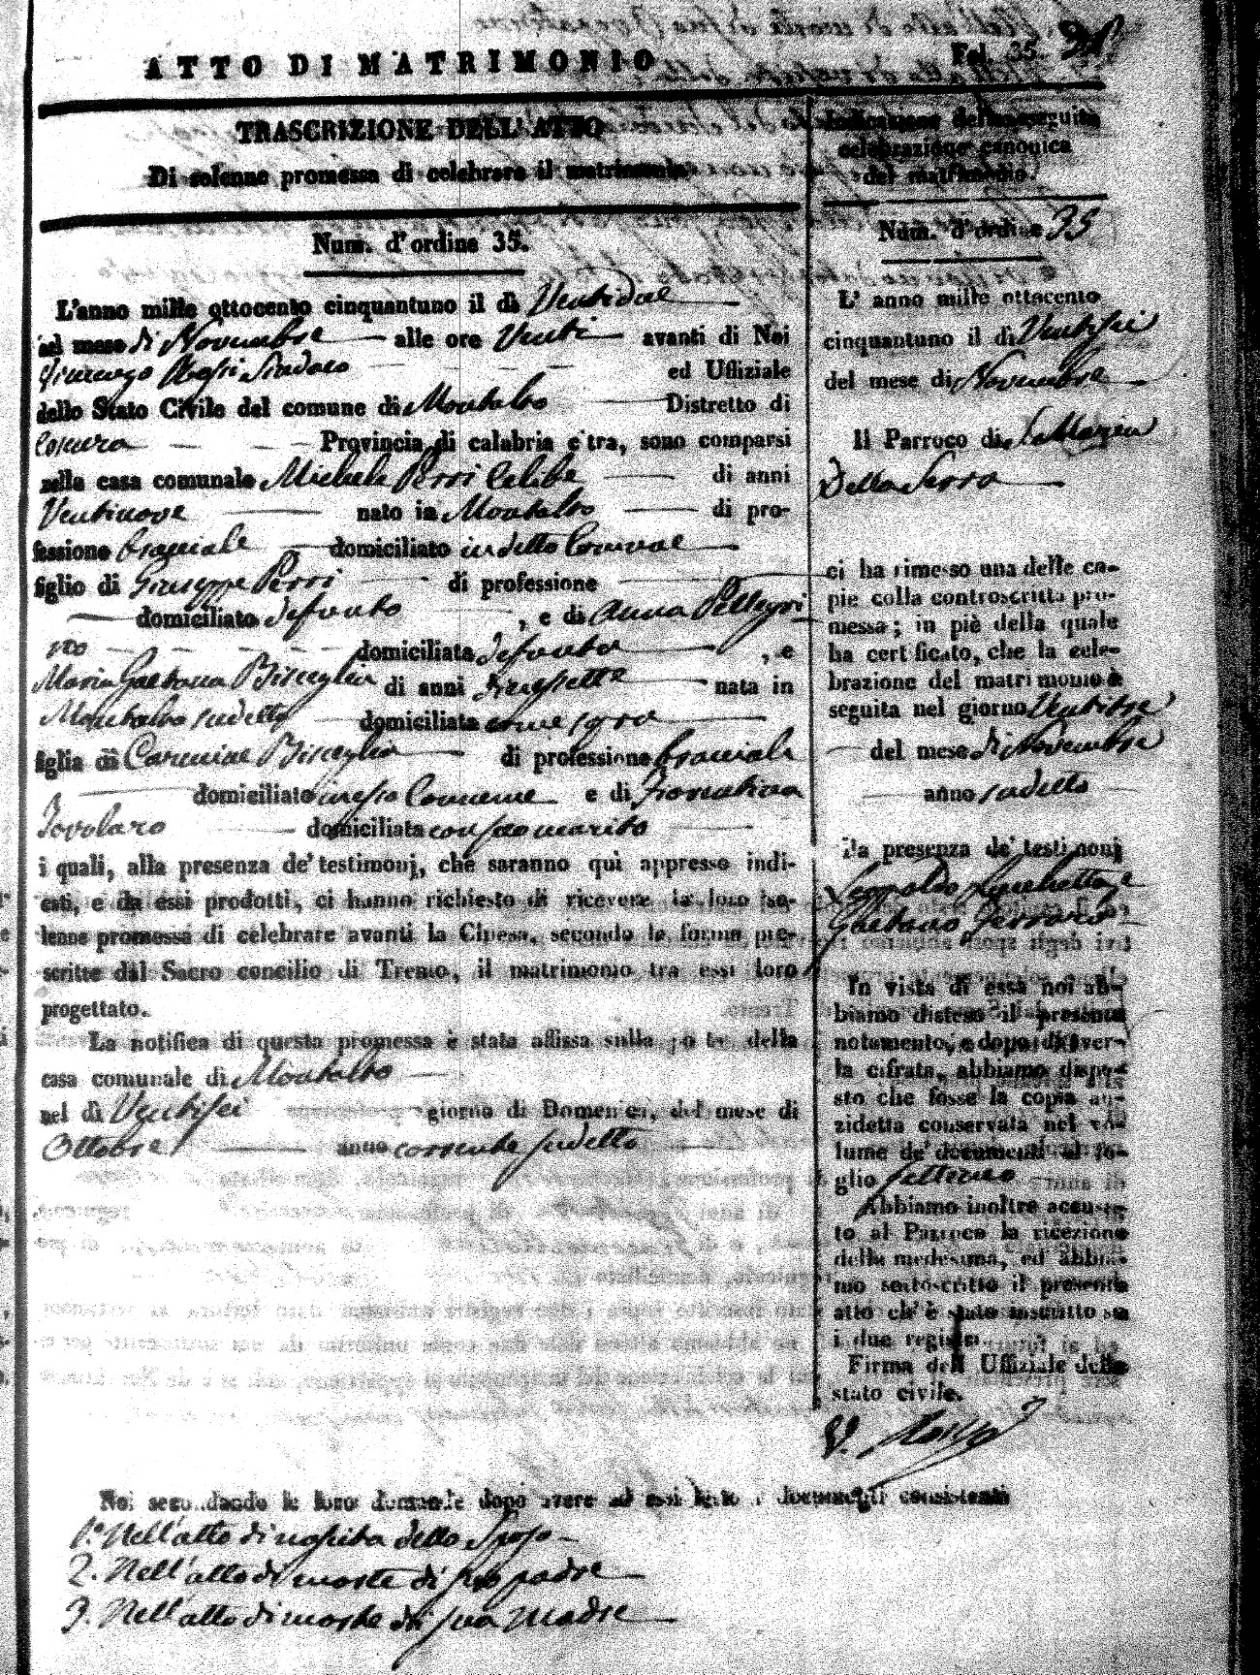 ATTO DI MATRIMONIO
Fol. 35.
TRASCRIZIONE DELL'ATTO
Di solenne promessa di celebrare il matrimonio
Num. d'ordine 35.
L'anno mille ottocento cinquantuno il dì Ventidue
del mese di Novembre alle ore Venti avanti di Noi
Rossi Sindaco ed Uffiziale
dello Stato Civile del comune di Montalto Distretto di
Cosenza Provincia di calabria citra, sono comparsi
nella casa comunale Michele Perri Celibe di anni
Ventinove nato in Montalto di pro-
fessione bracciale domiciliato in detto Comune
figlio di Giuseppe Perri di professione
domiciliato defonto, e di Anna Pellegri
no domiciliata defonta, e
Maria Gaetana Bisceglia di anni diecisette nata in
Montalto sudetto domiciliata come sopra
figlia di Carmine Bisceglia di professione bracciale
domiciliato in esso Comune e di Fiorentina
Tovolaro domiciliata con suo marito
i quali, alla presenza de' testimonj, che saranno quì appresso indi-
cati, e da essi prodotti, ci hanno richiesto di ricevere la loro so-
lenne promessa di celebrare avanti la Chiesa, secondo le forme pre-
scritte dal Sacro concilio di Trento, il matrimonio tra essi loro
progettato.
La notifica di questa promessa è stata affissa sulla porta della
casa comunale di Montalto
nel dì Ventisei giorno di Domenica, del mese di
Ottobre anno corrente sudetto
Noi secondando le loro domande dopo avere ad essi letto i documenti consistenti
1.° Nell'atto di nascita dello Sposo
2. Nell'atto di morte di suo padre
3. Nell'atto di morte di sua Madre
Indicazione della seguita
celebrazione canonica
del matrimonio.
Num. d'ordine 35
L'anno mille ottocento
cinquantuno il dì Ventisei
del mese di Novembre
Il Parroco di S. Maria
Della Serra
ci ha rimesso una delle co-
pie colla controscritta pro-
messa; in piè della quale
ha certificato, che la cele-
brazione del matrimonio è
seguita nel giorno Ventitre
del mese di Novembre
anno sudetto
alla presenza de' testimonj
Leopoldo
Gaetano Ferraro
In vista di essa noi ab-
biamo disteso il presente
notamento, e dopo di aver-
la cifrata, abbiamo dispo-
sto che fosse la copia an-
zidetta conservata nel vo-
lume de' documenti al fo-
glio
Abbiamo inoltre accusa-
to al Parroco la ricezione
della medesima, ed abbia-
mo sottoscritto il presente
atto ch'è stato inscritto su
i due registri
Firma dell'Uffiziale dello
stato civile.
V. Rossi